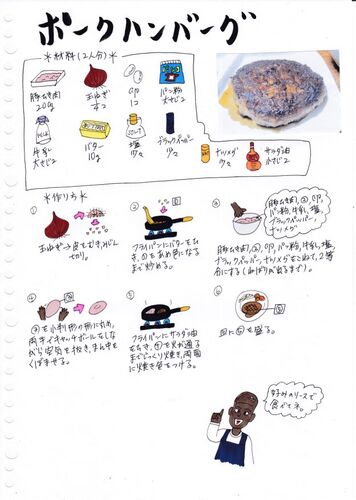 ポークハンバーグ
*材料(2人分)*
豚ひき肉
200g
玉ねぎ
卵
1コ
パン粉
大さじ2
牛乳
大さじ2
バター
10g
塩
少々
ブラックペッパー
少々
ナツメグ
少々
サラダ油
小さじ2
*作り方*
①
玉ねぎ→皮をむき、みじん
切り。
②
フライパンにバターをひ
き、①をあめ色になる
まで炒める。
③
豚ひき肉、②、卵、
パン粉、牛乳、塩、
ブラックペッパー、
ナツメグ
豚ひき肉、②、卵、パン粉、牛乳、塩、
ブラックペッパー、ナツメグをこねて、2等
分にする(ねばりが出るまで)。
④
③を小判形の形に丸め、
両手でキャッチボールをしな
がら空気を抜き、まん中を
くぼませる。
⑤
フライパンにサラダ油
をひき、④を火が通る
までじっくり焼き、両面
に焼き色をつける。
⑥
皿に⑤を盛る。
お好みのソースで
食べてネ。